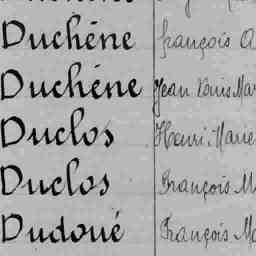 Duchéne françois
Duchéne Jean Louis Mar
Duclos Henri Marie
Duclos François M
Dudoué François Ma